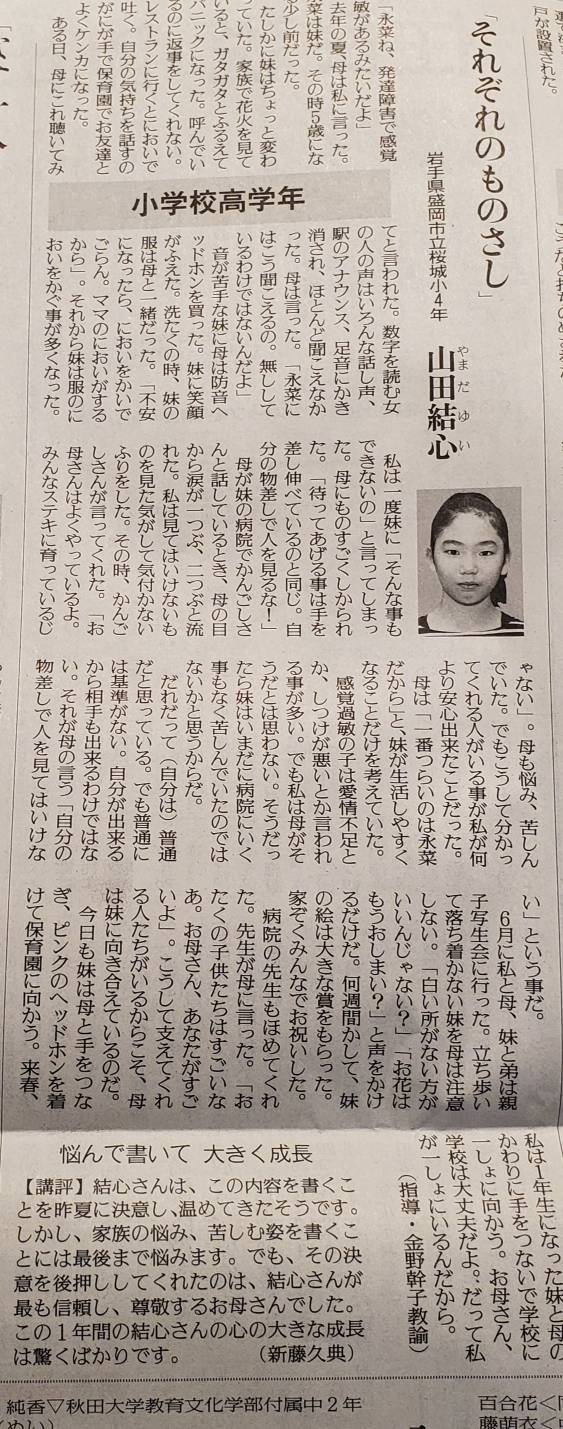 戸が設置された。
「それぞれのものさし」
岩手県盛岡市立桜城小4年
山田結心
やまだゆい
小学校高学年
「永菜ね、発達障害で感覚
敏があるみたいだよ」
去年の夏、母は私に言った。
菜は妹だ。その時5歳にな
少し前だった。
たしかに妹はちょっと変わ
っていた。家族で花火を見て
いると、ガタガタとふるえて
パニックになった。呼んでい
るのに返事をしてくれない。
レストランに行くとにおいで
吐く。自分の気持ちを話すの
がにが手で保育園でお友達と
よくケンカになった。
ある日、母にこれ聴いてみ
てと言われた。数字を読む女
の人の声はいろんな話し声、
駅のアナウンス、足音にかき
消され、ほとんど聞こえなか
った。母は言った。「永菜に
はこう聞こえるの。無しして
いるわけではないんだよ」
音が苦手な妹に母は防音ヘ
ッドホンを買った。妹に笑顔
がふえた。洗たくの時、妹の
服は母と一緒だった。「不安
になったら、においをかいで
ごらん。ママのにおいがする
から」。それから妹は服のに
おいをかぐ事が多くなった。
私は一度妹に「そんな事も
できないの」と言ってしまっ
た。母にものすごくしかられ
た。「待ってあげる事は手を
差し伸べているのと同じ。自
分の物差しで人を見るな!」
母が妹の病院でかんごしさ
んと話しているとき、母の目
から涙が一つぶ、二つぶと流
れた。私は見てはいけないも
のを見た気がして気付かない
ふりをした。その時、かんご
しさんが言ってくれた。「お
母さんはよくやっているよ。
みんなステキに育っているじ
ゃない」。母も悩み、苦しん
でいた。でもこうして分かっ
てくれる人がいる事が私が何
より安心出来たことだった。
母は「一番つらいのは永菜
だから」と、妹が生活しやすく
なることだけを考えていた。
感覚過敏の子は愛情不足と
か、しつけが悪いとか言われ
る事が多い。でも私は母がそ
うだとは思わない。そうだっ
たら妹はいまだに病院にいく
事もなく苦しんでいたのでは
ないかと思うからだ。
だれだって(自分は)普通
だと思っている。でも普通に
は基準がない。自分が出来る
から相手も出来るわけではな
い。それが母の言う「自分の
物差しで人を見てはいけな
い」という事だ。
6月に私と母、妹と弟は親
子写生会に行った。立ち歩い
て落ち着かない妹を母は注意
しない。「白い所がない方が
いいんじゃない?」「お花は
もうおしまい?」と声をかけ
るだけだ。何週間かして、妹
の絵は大きな賞をもらった。
家ぞくみんなでお祝いした。
病院の先生もほめてくれ
た。先生が母に言った。「お
たくの子供たちはすごいな
あ。お母さん、あなたがすご
いよ」。こうして支えてくれ
る人たちがいるからこそ、母
は妹に向き合えているのだ。
今日も妹は母と手をつな
ぎ、ピンクのヘッドホンを着
けて保育園に向かう。来春、
私は1年生になった妹と母の
かわりに手をつないで学校に
一しょに向かう。お母さん、
学校は大丈夫だよ。だって私
が一しょにいるんだから。
(指導・金野幹子教諭)
悩んで書いて 大きく成長
【講評】結心さんは、この内容を書くこ
とを昨夏に決意し、温めてきたそうです。
しかし、家族の悩み、苦しむ姿を書くこ
とには最後まで悩みます。でも、その決
意を後押ししてくれたのは、結心さんが
最も信頼し、尊敬するお母さんでした。
この1年間の結心さんの心の大きな成長
は驚くばかりです。 (新藤久典)
純香▽秋田大学教育文化学部付属中2年
百合花<
藤萌衣<